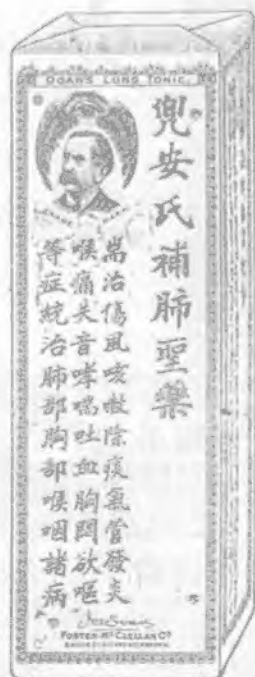 DOAN'S LUNG TONIC.
兜安氏補肺聖藥
耑治傷風咳嗽除痰氣管發炎
喉痛失音哮喘吐血胸悶欲嘔
等症統治肺部胸部喉咽諸病
TRADE MARK
FOSTER-McCLELLAN Co